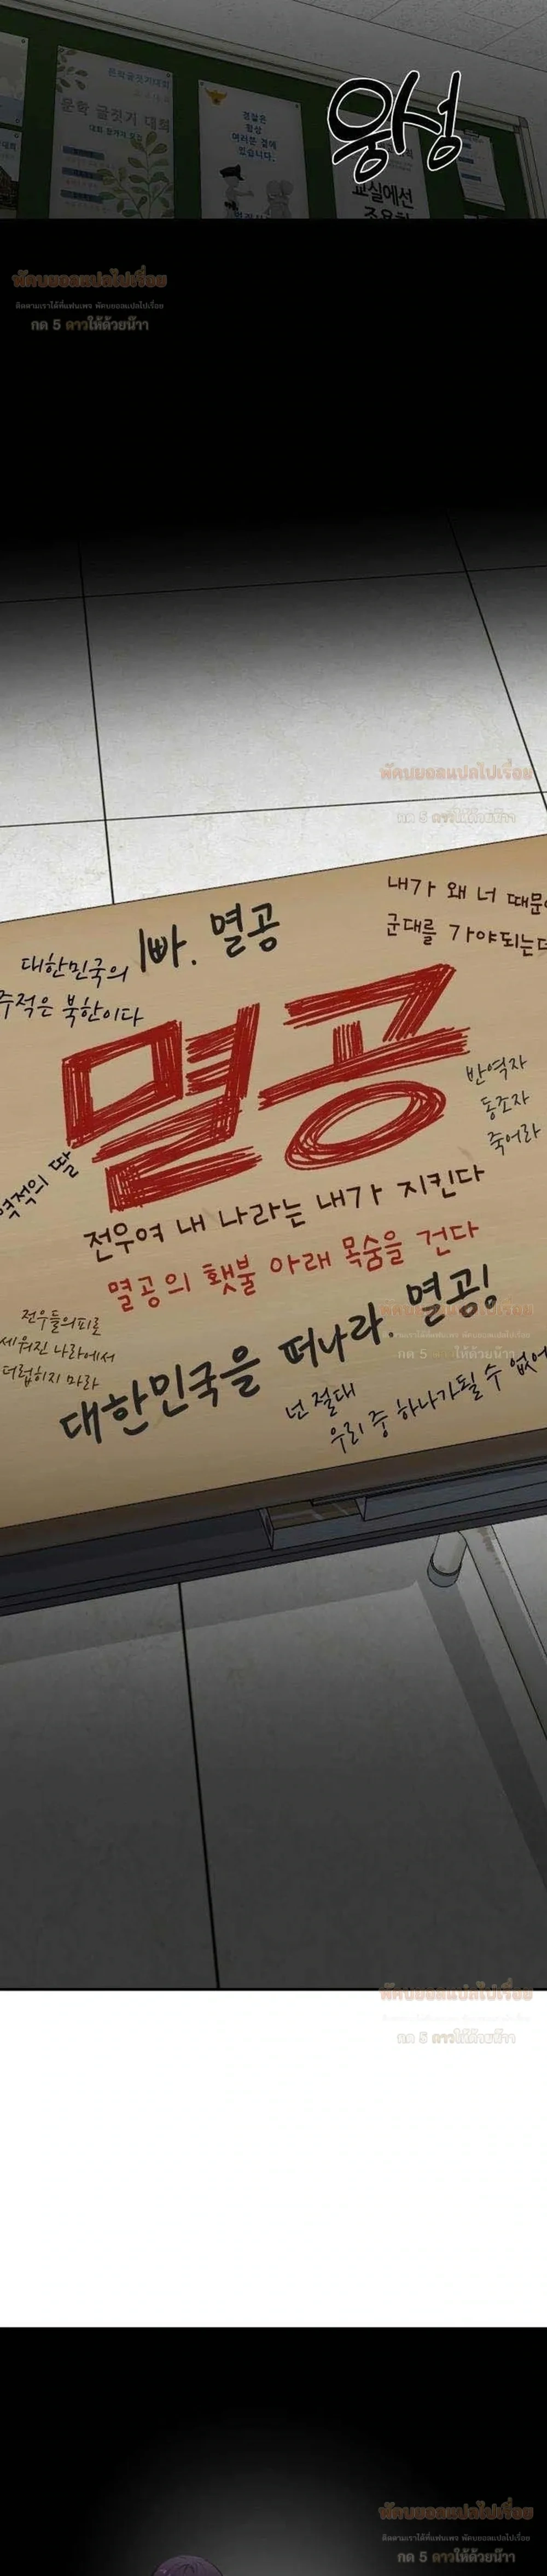 문학글짓기대회
문학 글짓기 대회
경찰은
항상
여러분 곁에
있습니다.
웅성
교실에선
조용히
พัคบยอลแปลไปเรื่อย
ติดตามเราได้ที่แฟนเพจ พัคบยอลแปลไปเรื่อย
กด 5 ดาวให้ด้วยน๊าา
พัคบยอลแปลไปเรื่อย
กด 5 ดาวให้ด้วยน๊าา
내가 왜 너 때문
군대를 가야되는
빠. 멸공
대한민국의
주적은 북한이다
멸공
반역자
동조자
죽어라
역적의 딸
전우여 내 나라는 내가 지킨다
멸공의 횃불 아래 목숨을 건다
พัคบยอลแปลไปเรื่อย
กด 5 ดาวให้ด้วยน๊าา
전우들의피로
세워진 나라에서
더럽히지 마라
대한민국을 떠나라. 멸공!
넌 절대
우리 중 하나가될 수 없어
พัคบยอลแปลไปเรื่อย
กด 5 ดาวให้ด้วยน๊าา
พัคบยอลแปลไปเรื่อย
ติดตามเราได้ที่แฟนเพจ พัคบยอลแปลไปเรื่อย
กด 5 ดาวให้ด้วยน๊าา